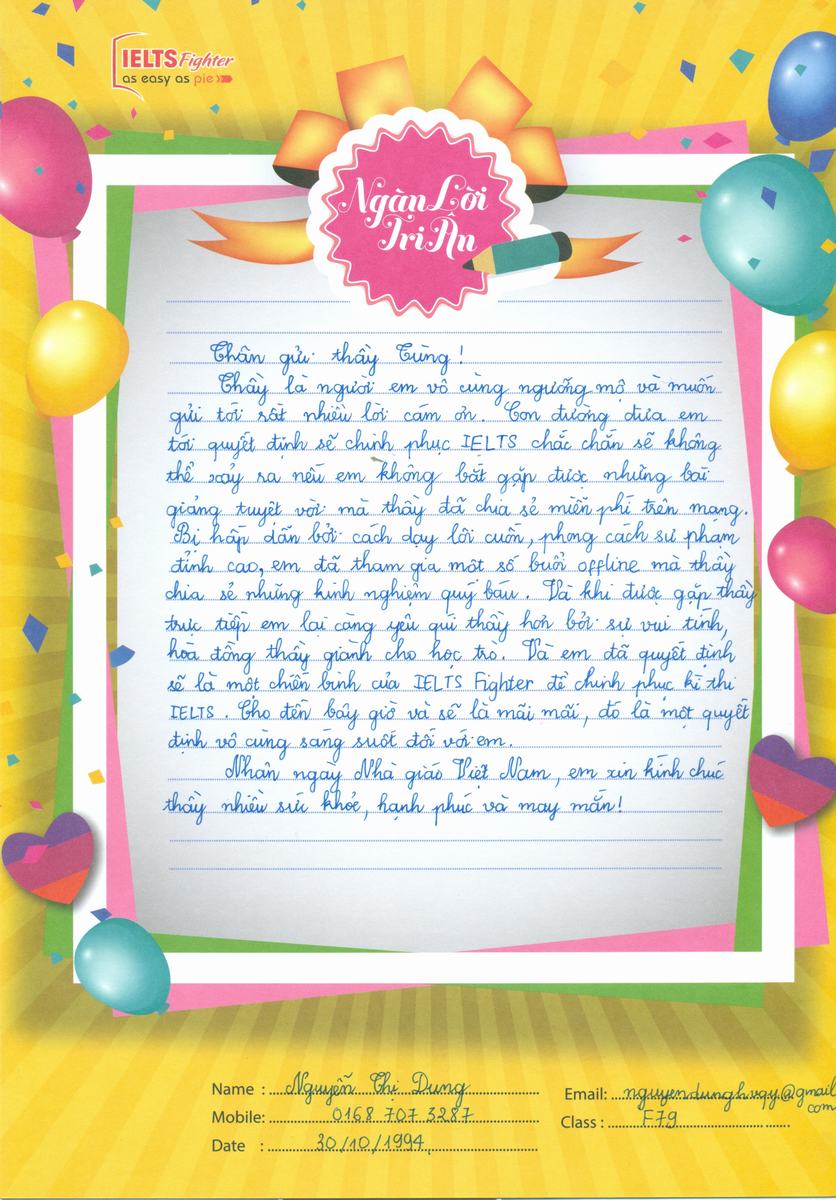 IELTS Fighter
as easy as pie
Ngàn Lời
Tri Ân
Thân gửi thầy Tùng!
Thầy là người em vô cùng ngưỡng mộ và muốn
gửi tới rất nhiều lời cám ơn. Con đường đưa em
tới quyết định sẽ chinh phục IELTS chắc chắn sẽ không
thể xảy ra nếu em không bắt gặp được những bài
giảng tuyệt vời mà thầy đã chia sẻ miễn phí trên mạng.
Bị hấp dẫn bởi cách dạy lôi cuốn, phong cách sư phạm
đỉnh cao, em đã tham gia một số buổi offline mà thầy
chia sẻ những kinh nghiệm quý báu. Và khi được gặp thầy
trực tiếp em lại càng yêu quí thầy hơn bởi sự vui tính,
hoà đồng thầy giành cho học trò. Và em đã quyết định
sẽ là một chiến binh của IELTS Fighter để chinh phục kì thi
IELTS. Cho đến bây giờ và sẽ là mãi mãi, đó là một quyết
định vô cùng sáng suốt đối với em.
Nhân ngày Nhà giáo Việt Nam, em xin kính chúc
thầy nhiều sức khỏe, hạnh phúc và may mắn!
Name : Nguyễn Thị Dung
Email: nguyendunghvqy@gmail.com
Mobile: 0168 707 3287
Class : F79
Date : 30/10/1994.